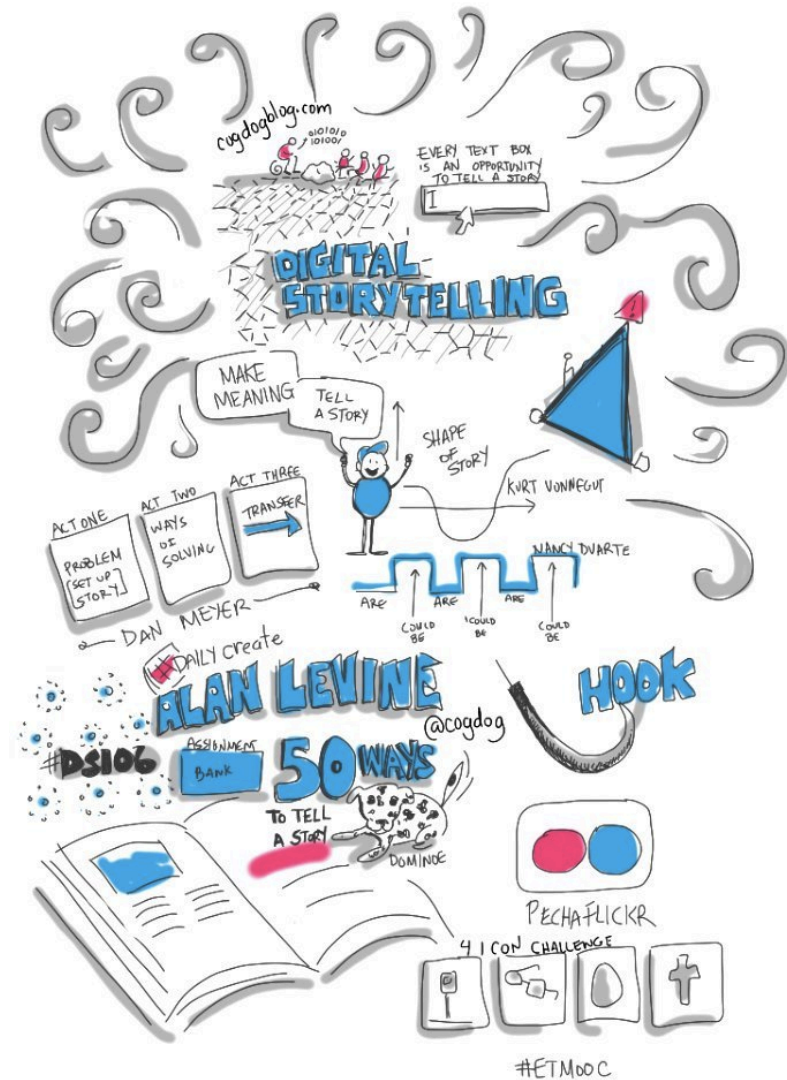 cogdogblog.com
0101010
101001
EVERY TEXT BOX
IS AN OPPORTUNITY
TO TELL A STORY
I
DIGITAL
STORYTELLING
!
MAKE
MEANING
TELL
A STORY
SHAPE
OF
STORY
KURT VONNEGUT
ACT ONE
PROBLEM
[SET UP
STORY]
ACT TWO
WAYS
OF
SOLVING
ACT THREE
TRANSFER
DAN MEYER
NANCY DUARTE
ARE
COULD
BE
ARE
COULD
BE
ARE
COULD
BE
DAILY create
ALAN LEVINE
@cogdog
HOOK
#DS106
ASSIGNMENT
BANK
50 WAYS
TO TELL
A STORY
DOMINOE
PECHAFLICKR
4 ICON CHALLENGE
#ETMOOC